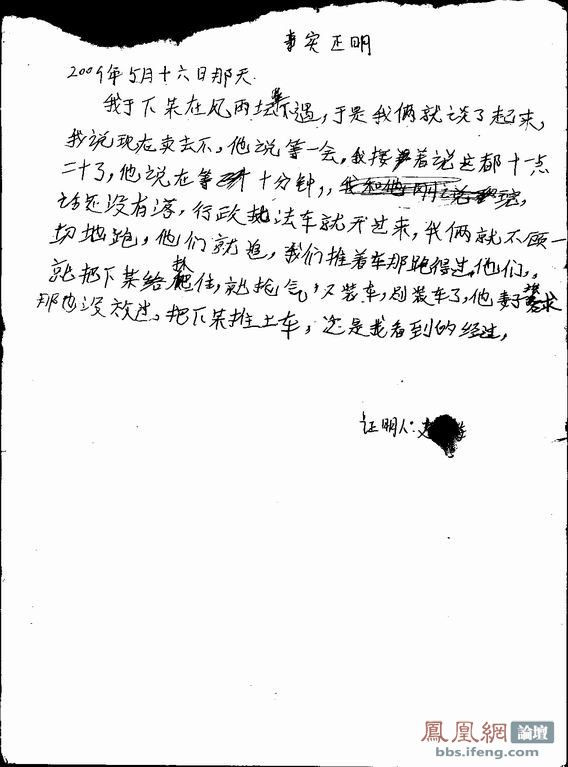 事实正明
2009年5月十六日那天
我于下某在风雨坛下遇,于是我俩就说了起来,
我说现在卖去不,他说等一会,我接着说这都十一点
二十了,他说在等 十分钟,,我和他刚
话还没有落,行政执法车就开过来,我俩就不顾一
切地跑,他们就追,我们推着车那跑得过他们,,
就把下某给抓住,就 气,又装车,刚装车了,他妻子 求
那也没放过,把下某推上车,这是我看到的经过,
证明人:
鳳凰網 論壇
bbs.ifeng.com